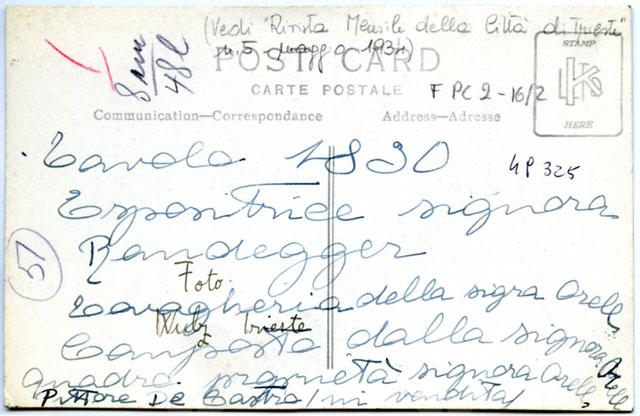 (Vedi "Rivista Mensile della Città di Trieste"
n. 5 - maggio 1934)
8 um
48l
POST CARD
CARTE POSTALE
F PC 2 - 16/2
STAMP
HERE
Communication—Correspondance
Address—Adresse
Tavola 1830
4P 325
Espositrice signora
Randegger
51
Foto
Tovagheria della sigra Orell
Wulz Trieste
Composta dalla signora Orell
quadri proprietà signora Orell
Pittore De Castro / in vendita /